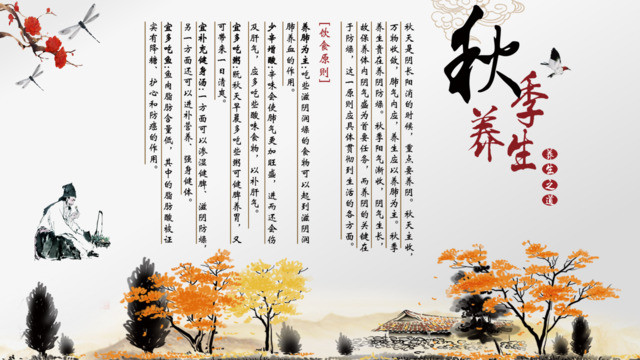 秋季养生
长生之道
秋天是阴长阳消的时候,重点要养阴。秋天主收,
万物收敛,肺气内应,养生应以养肺为主。秋季
养生贵在养阴防燥。秋季阳气渐收,阴气生长,
故保养体内阴气盛为首要任务,而养阴的关键在
于防燥,这一原则应具体贯彻到生活的各方面。
[饮食原则]
养肺为主:吃些滋阴润燥的食物可以起到滋阴润
肺养血的作用。
少辛增酸:辛味会使肺气更加旺盛,进而还会伤
及肝气,应多吃些酸味食物,以补肝气。
宜多吃粥:既秋天早晨多吃些粥可健脾养胃,又
可带来一日清爽。
宜补充健身汤:一方面可以渗湿健脾、滋阴防燥,
另一方面还可以进补营养、强身健体。
宜多吃鱼:鱼肉脂肪含量低,其中的脂肪酸被证
实有降糖、护心和防癌的作用。